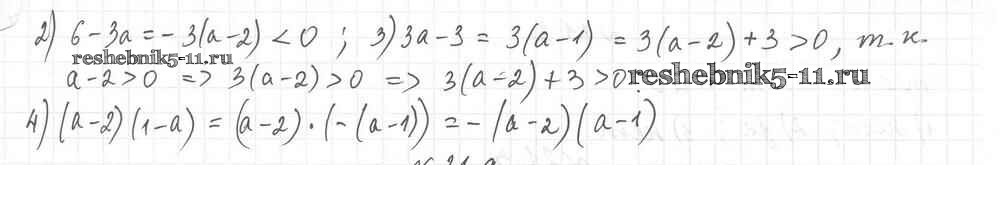 2) 6 - 3a = - 3(a - 2) < 0 ; 3) 3a - 3 = 3(a - 1) = 3(a - 2) + 3 > 0, т.к.
reshebnik5-11.ru
a - 2 > 0 => 3(a - 2) > 0 => 3(a - 2) + 3 > 0
reshebnik5-11.ru
4) (a - 2)(1 - a) = (a - 2) · (-(a - 1)) = - (a - 2)(a - 1)